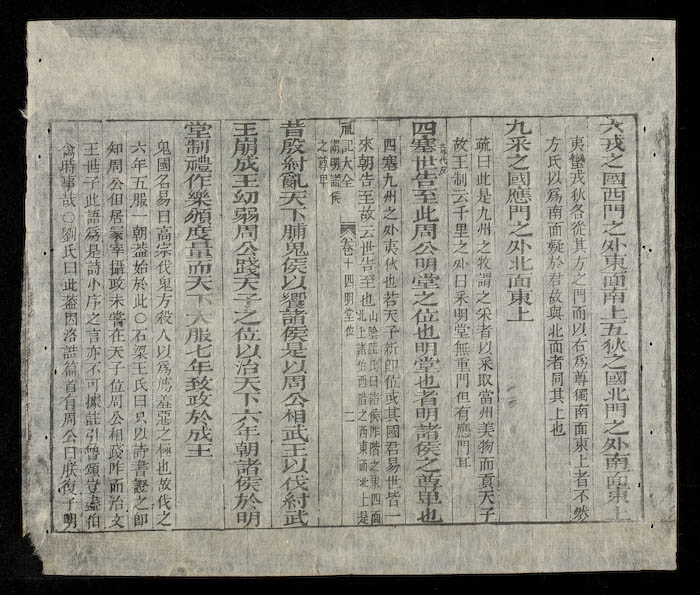 六戎之國西門之外東面南上五狄之國北門之外南面東上
夷蠻戎狄各從其方之門而以右爲尊獨南面東上者不然
方氏以爲南面疑於君故與北面者同其上也
九采之國應門之外北面東上
疏曰此是九州之牧謂之采者以采取當州美物而貢天子
故王制云千里之外曰采明堂無重門但有應門耳
四塞世告至此周公明堂之位也明堂也者明諸侯之尊卑也
四塞九州之外夷狄也若天子新即位或其國君易世皆一
來朝告至故云世告至也
山陰陸氏曰諸侯阼階之東西面
北上諸伯西階之西東面北上是
禮記大全
卷十四明堂位
二
諸侯
之尊卑
昔殷紂亂天下脯鬼侯以饗諸侯是以周公相武王以伐紂武
王崩成王幼弱周公踐天子之位以治天下六年朝諸侯於明
堂制禮作樂頒度量而天下大服七年致政於成王
鬼國名易曰高宗伐鬼方殺人以爲薦羞惡之極也故伐之
六年五服一朝蓋始於此○石梁王氏曰只以詩書證之即
知周公但居冢宰攝政未嘗在天子位周公相踐阼而治文
王世子此語爲是詩小序之言亦不可據註引魯頌豈盡伯
禽時事哉○劉氏曰此蓋因洛誥篇首有周公曰朕復子明